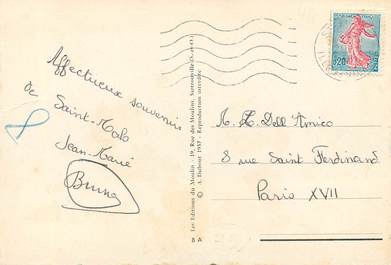 Affectueux souvenirs
de
Saint-Malo
Jean-Marie
Bruno
Les Editions du Moulin - 19, Rue des Moulins, Sartrouville (S.-et-O.)
© A. Dubout 1957 - Reproduction interdite
B A
0,20
M. A. Dell'Amico
8 rue Saint Ferdinand
Paris XVII